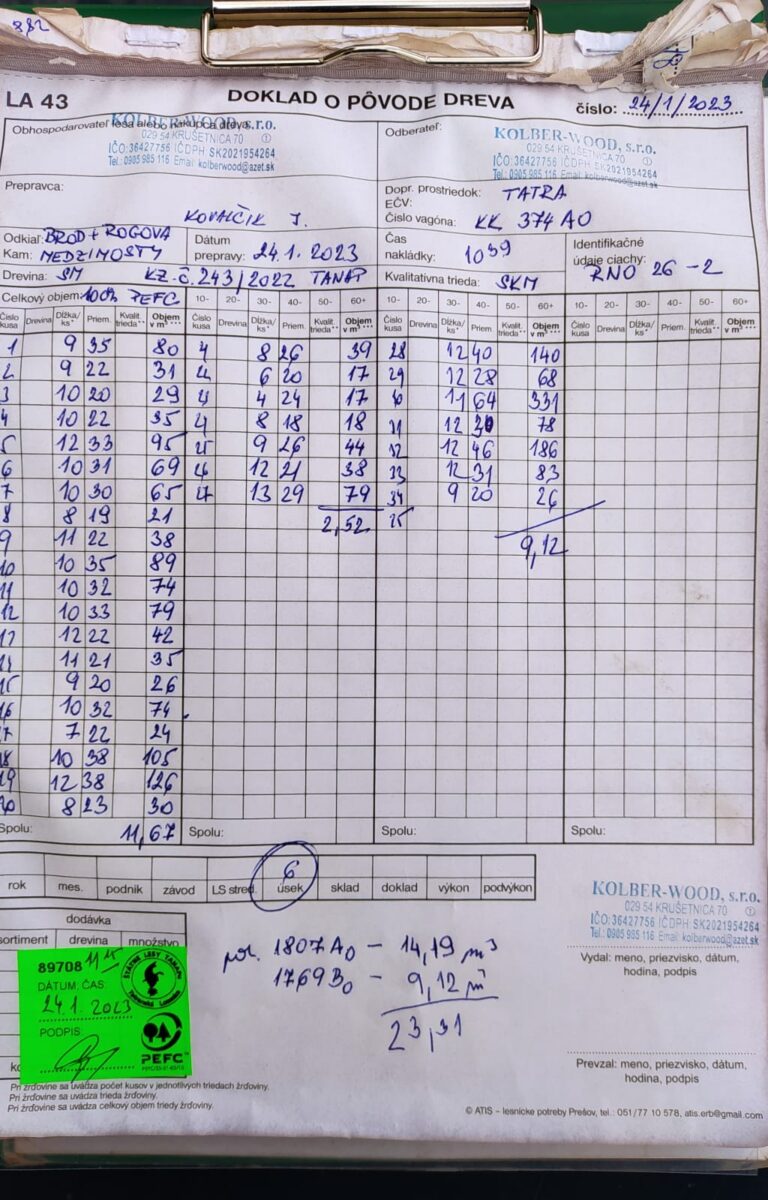 882
LA 43
DOKLAD O PÔVODE DREVA
číslo: 24/1/2023
Obhospodarovateľ lesa alebo nákupca dreva:
KOLBER-WOOD, s.r.o.
029 54 KRUŠETNICA 70 ①
IČO:36427756 IČDPH SK2021954264
Tel.: 0905 985 116 Email: kolberwood@azet.sk
Odberateľ:
KOLBER-WOOD, s.r.o.
029 54 KRUŠETNICA 70 ①
IČO:36427756 IČDPH SK2021954264
Tel.: 0905 985 116 Email: kolberwood@azet.sk
Prepravca:
KOVALČIK J.
Dopr. prostriedok: TATRA
EČV:
Číslo vagóna: KK 374 AO
Odkiaľ: BROD + ROGOVA
Kam: MEDZIMOSTY
Dátum
prepravy: 24.1. 2023
Čas
nakládky: 10 39
Identifikačné
údaje ciachy:
RNO 26 - 2
Drevina: SM KZ.Č. 243/2022 TANAP
Kvalitatívna trieda: SKM
Celkový objem: 100% PEFC
10- 20- 30- 40- 50- 60+ 10- 20- 30- 40- 50- 60+ 10- 20- 30- 40- 50- 60+
Číslo kusa Drevina Dĺžka/ks* Priem. Kvalit. trieda** Objem v m³***
Číslo kusa Drevina Dĺžka/ks* Priem. Kvalit. trieda** Objem v m³***
Číslo kusa Drevina Dĺžka/ks* Priem. Kvalit. trieda** Objem v m³***
Číslo kusa Drevina Dĺžka/ks* Priem. Kvalit. trieda** Objem v m³***
1 9 35 80 8 26 39 28 12 40 140
2 9 22 31 6 20 17 29 12 28 68
3 10 20 29 4 24 17 11 64 331
4 10 22 35 8 18 18 12 30 78
5 12 33 95 9 26 44 12 46 186
6 10 31 69 12 21 38 12 31 83
7 10 30 65 13 29 79 34 9 20 26
8 8 19 21 2,52
9 11 22 38 9,12
10 10 35 89
11 10 32 74
12 10 33 79
12 22 42
11 21 35
15 9 20 26
16 10 32 74
7 22 24
18 10 38 105
19 12 38 126
20 8 23 30
Spolu: 11,67 Spolu: Spolu: Spolu:
6
rok mes. podnik závod LS stred. úsek sklad doklad výkon podvýkon
dodávka
sortiment drevina množstvo
89708 11 15
DÁTUM: ČAS:
24.1. 2023
PODPIS:
ŠTÁTNE LESY TANAPu
Tatranská Lomnica
PEFC
por. 1807A0 - 14,19 m³
1769B0 - 9,12 m³
23,31
KOLBER-WOOD, s.r.o.
029 54 KRUŠETNICA 70 ①
IČO:36427756 IČDPH SK2021954264
Tel.: 0905 985 116 Email: kolberwood@azet.sk
Vydal: meno, priezvisko, dátum,
hodina, podpis
Prevzal: meno, priezvisko, dátum,
hodina, podpis
Pri žrďovine sa uvádza počet kusov v jednotlivých triedach žrďoviny.
Pri žrďovine sa uvádza trieda žrďoviny.
Pri žrďovine sa uvádza celkový objem triedy žrďoviny.
© ATIS – lesnícke potreby Prešov, tel.: 051/77 10 578, atis.erb@gmail.com